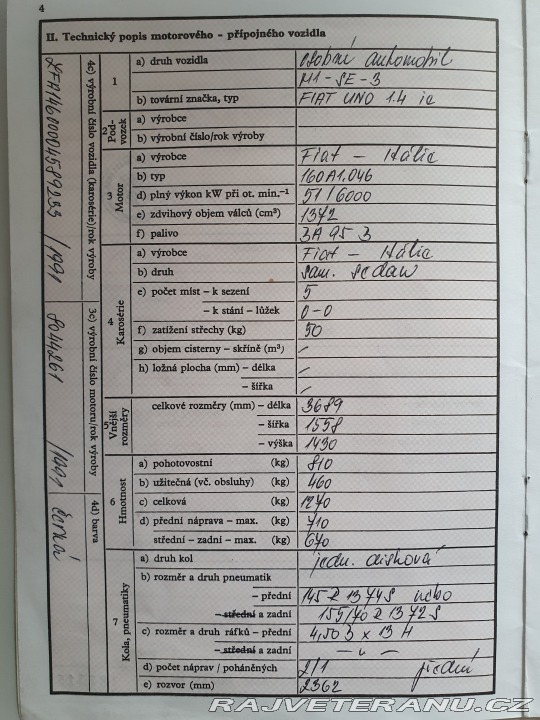 4
II. Technický popis motorového – přípojného vozidla
1
a) druh vozidla osobní automobil
M1-SE-3
b) tovární značka, typ FIAT UNO 1.4 ie
2 Pod-
vozek
a) výrobce
b) výrobní číslo/rok výroby
3 Motor
a) výrobce Fiat – Itálie
b) typ 160A1.046
d) plný výkon kW při ot. min.⁻¹ 51/6000
e) zdvihový objem válců (cm³) 1372
f) palivo BA 95 B
4 Karosérie
a) výrobce Fiat – Itálie
b) druh sam. sedan
e) počet míst – k sezení 5
– k stání – lůžek 0-0
f) zatížení střechy (kg) 50
g) objem cisterny – skříně (m³) –
h) ložná plocha (mm) – délka –
– šířka –
5 Vnější
rozměry
celkové rozměry (mm) – délka 3689
– šířka 1558
– výška 1430
6 Hmotnost
a) pohotovostní (kg) 810
b) užitečná (vč. obsluhy) (kg) 460
c) celková (kg) 1270
d) přední náprava – max. (kg) 710
střední – zadní – max. (kg) 670
7 Kola, pneumatiky
a) druh kol jedn. disková
b) rozměr a druh pneumatik
– přední 145 R 13 74S nebo
– střední a zadní 155/70 R 13 72 S
c) rozměr a druh ráfků – přední 4,50 B x 13 H
– střední a zadní — " —
d) počet náprav / poháněných 2/1 přední
e) rozvor (mm) 2362
4c) výrobní číslo vozidla (karosérie)/rok výroby
ZFA14600004589233 /1991
3c) výrobní číslo motoru/rok výroby
8044261 /1991
4d) barva
RAJVETERANU.CZ